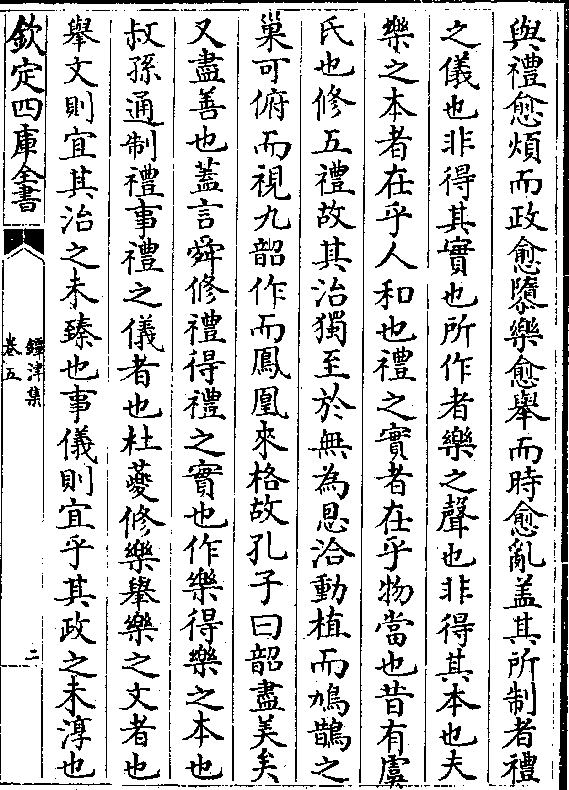 與禮愈煩而政愈隳樂愈舉而時愈亂盖其所制者禮
之儀也非得其實也所作者樂之聲也非得其本也夫
樂之本者在乎人和也禮之實者在乎物當也昔有虞
氏也修五禮故其治獨至於無為恩洽動植而鳩鵲之
巢可俯而視九韶作而鳳凰來格故孔子曰韶盡美矣
又盡善也蓋言舜修禮得禮之實也作樂得樂之本也
叔孫通制禮事禮之儀者也杜蘷修樂舉樂之文者也
舉文則宜其治之未臻也事儀則宜乎其政之未淳也
欽定四庫全書
鐔津集
卷五
二